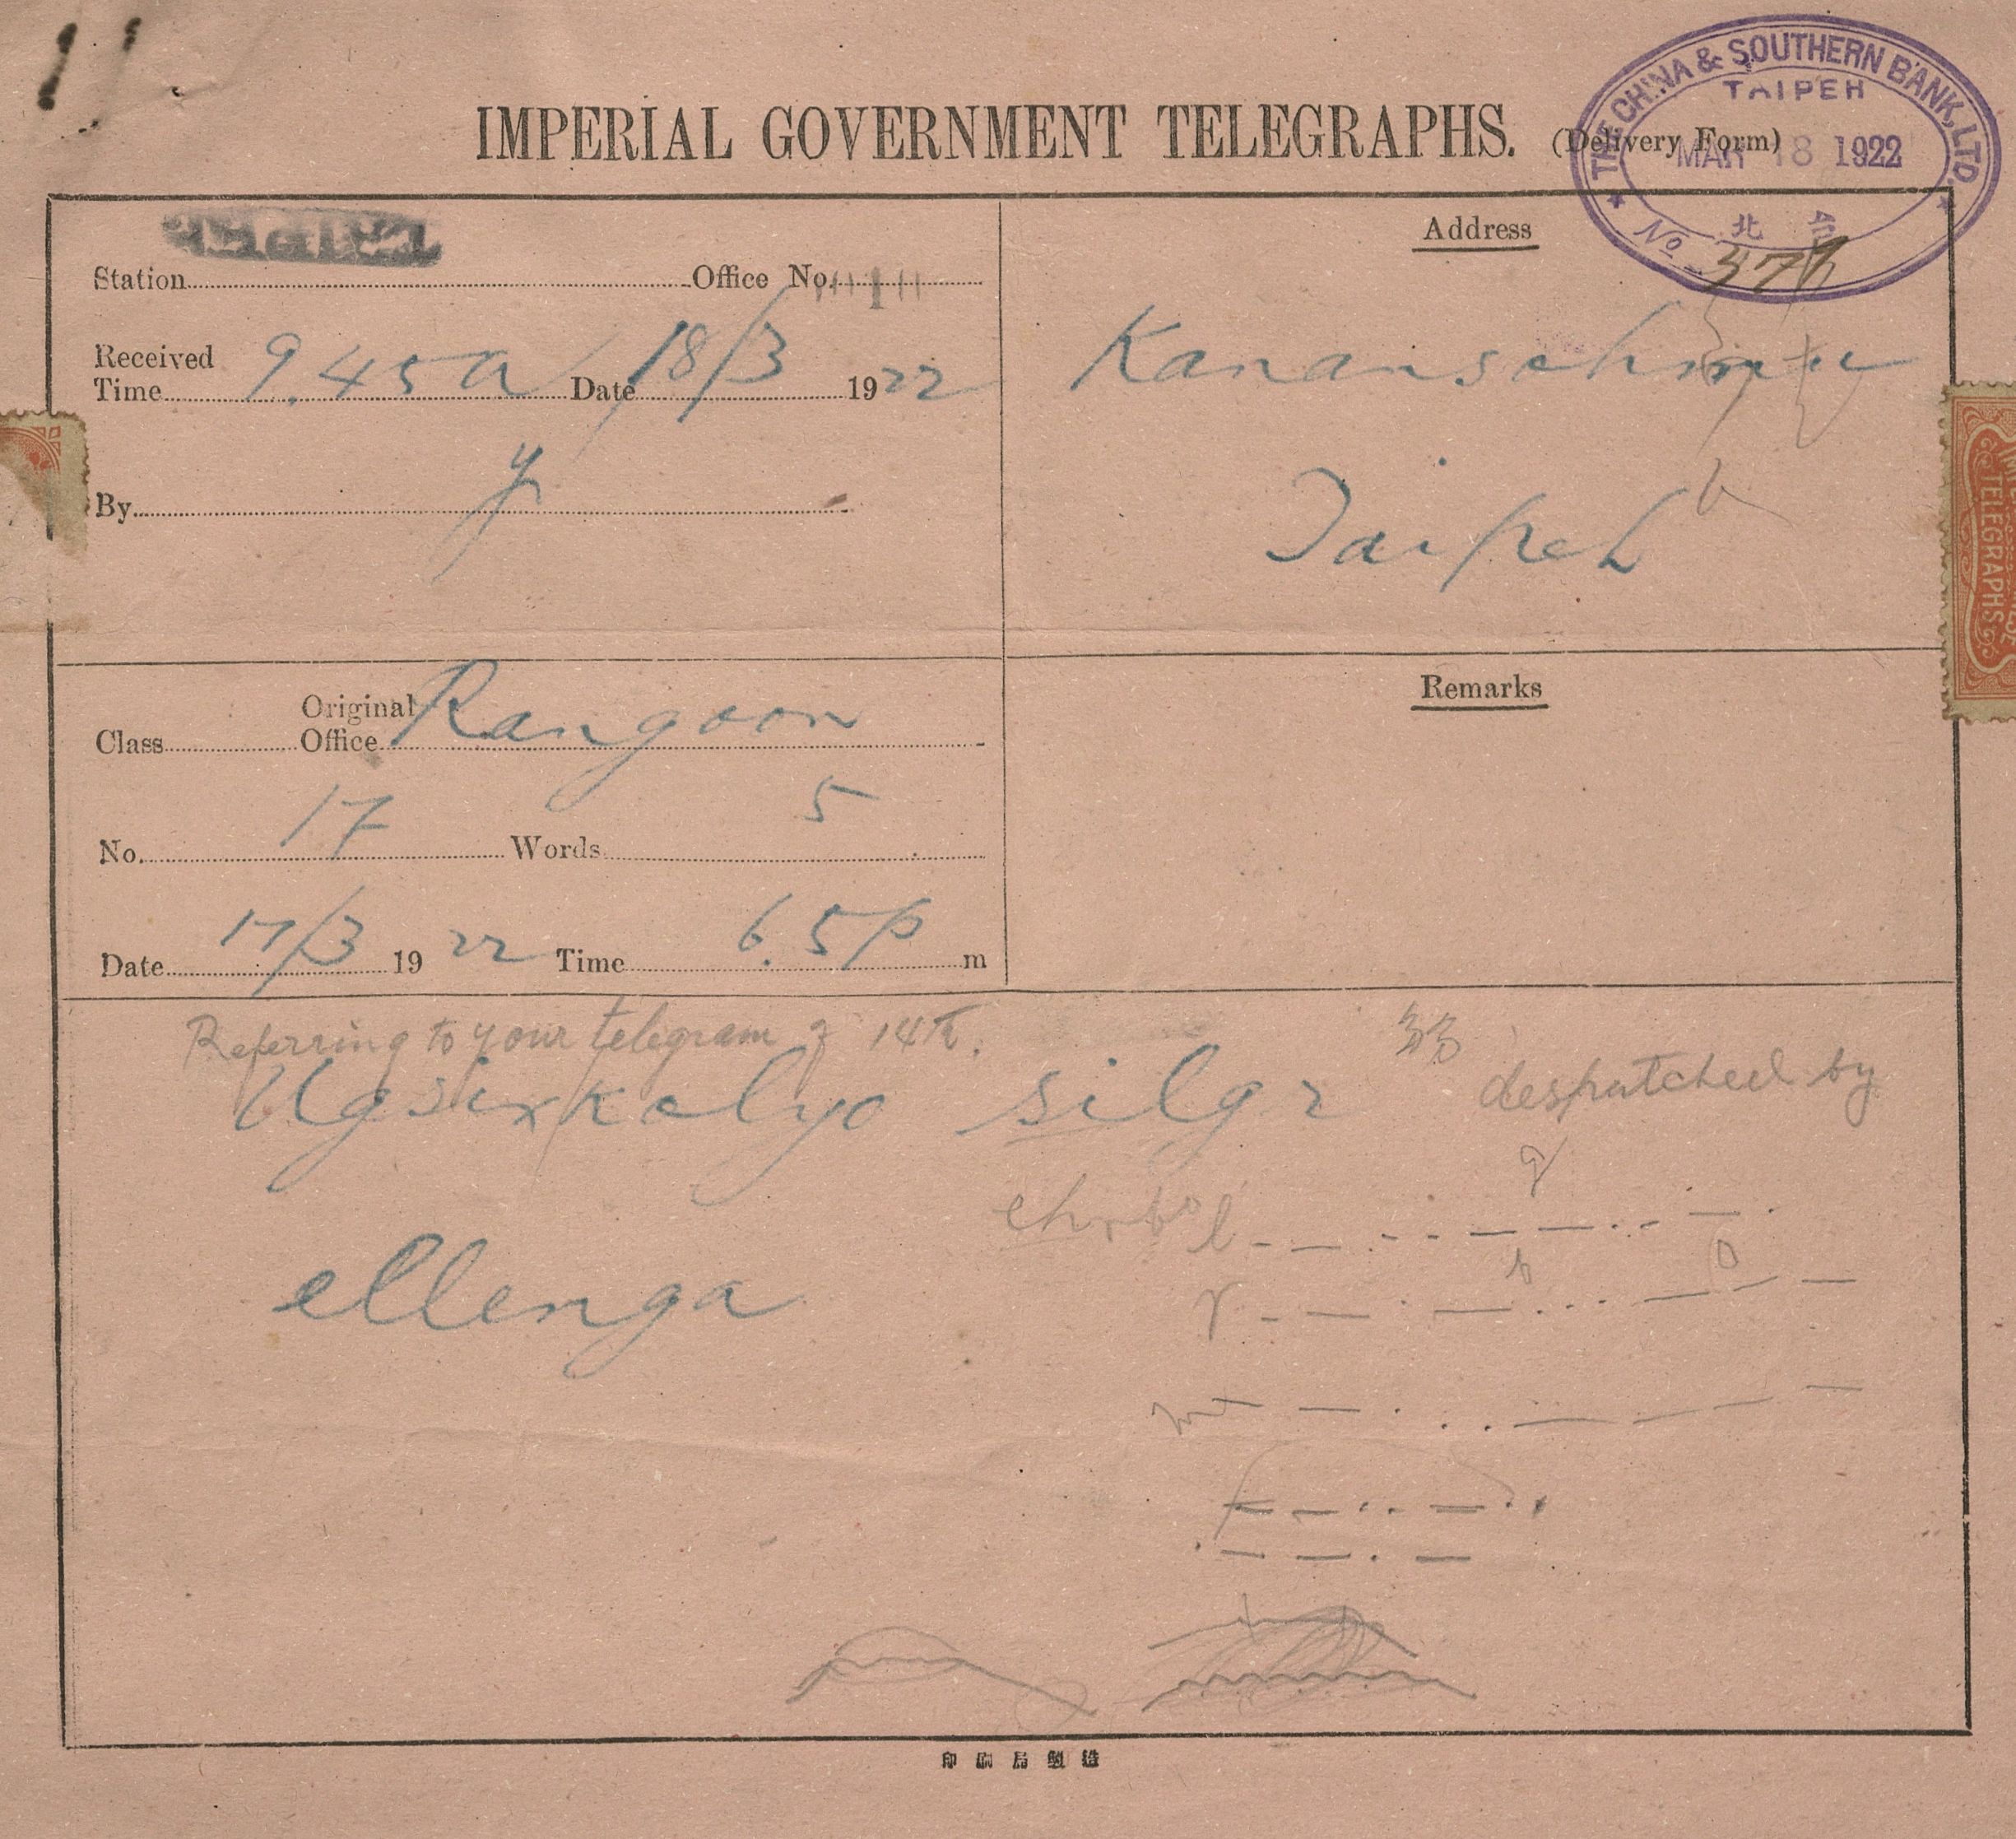 IMPERIAL GOVERNMENT TELEGRAPHS. (Delivery Form)
THE CHINA & SOUTHERN BANK, LTD.
TAIPEH
MAR 18 1922
北
No 371
Station Office No.
Received Time 9.45a Date 18/3 1922
By y
Address
Kananschin
Taipeh
TELEGRAPHS
Class Original Office Rangoon
No. 17 Words 5
Date 17/3 1922 Time 6.5p m
Remarks
Referring to your telegram of 14th.
Ugsixkalyo silgr despatched by
ellenga
印刷局製造